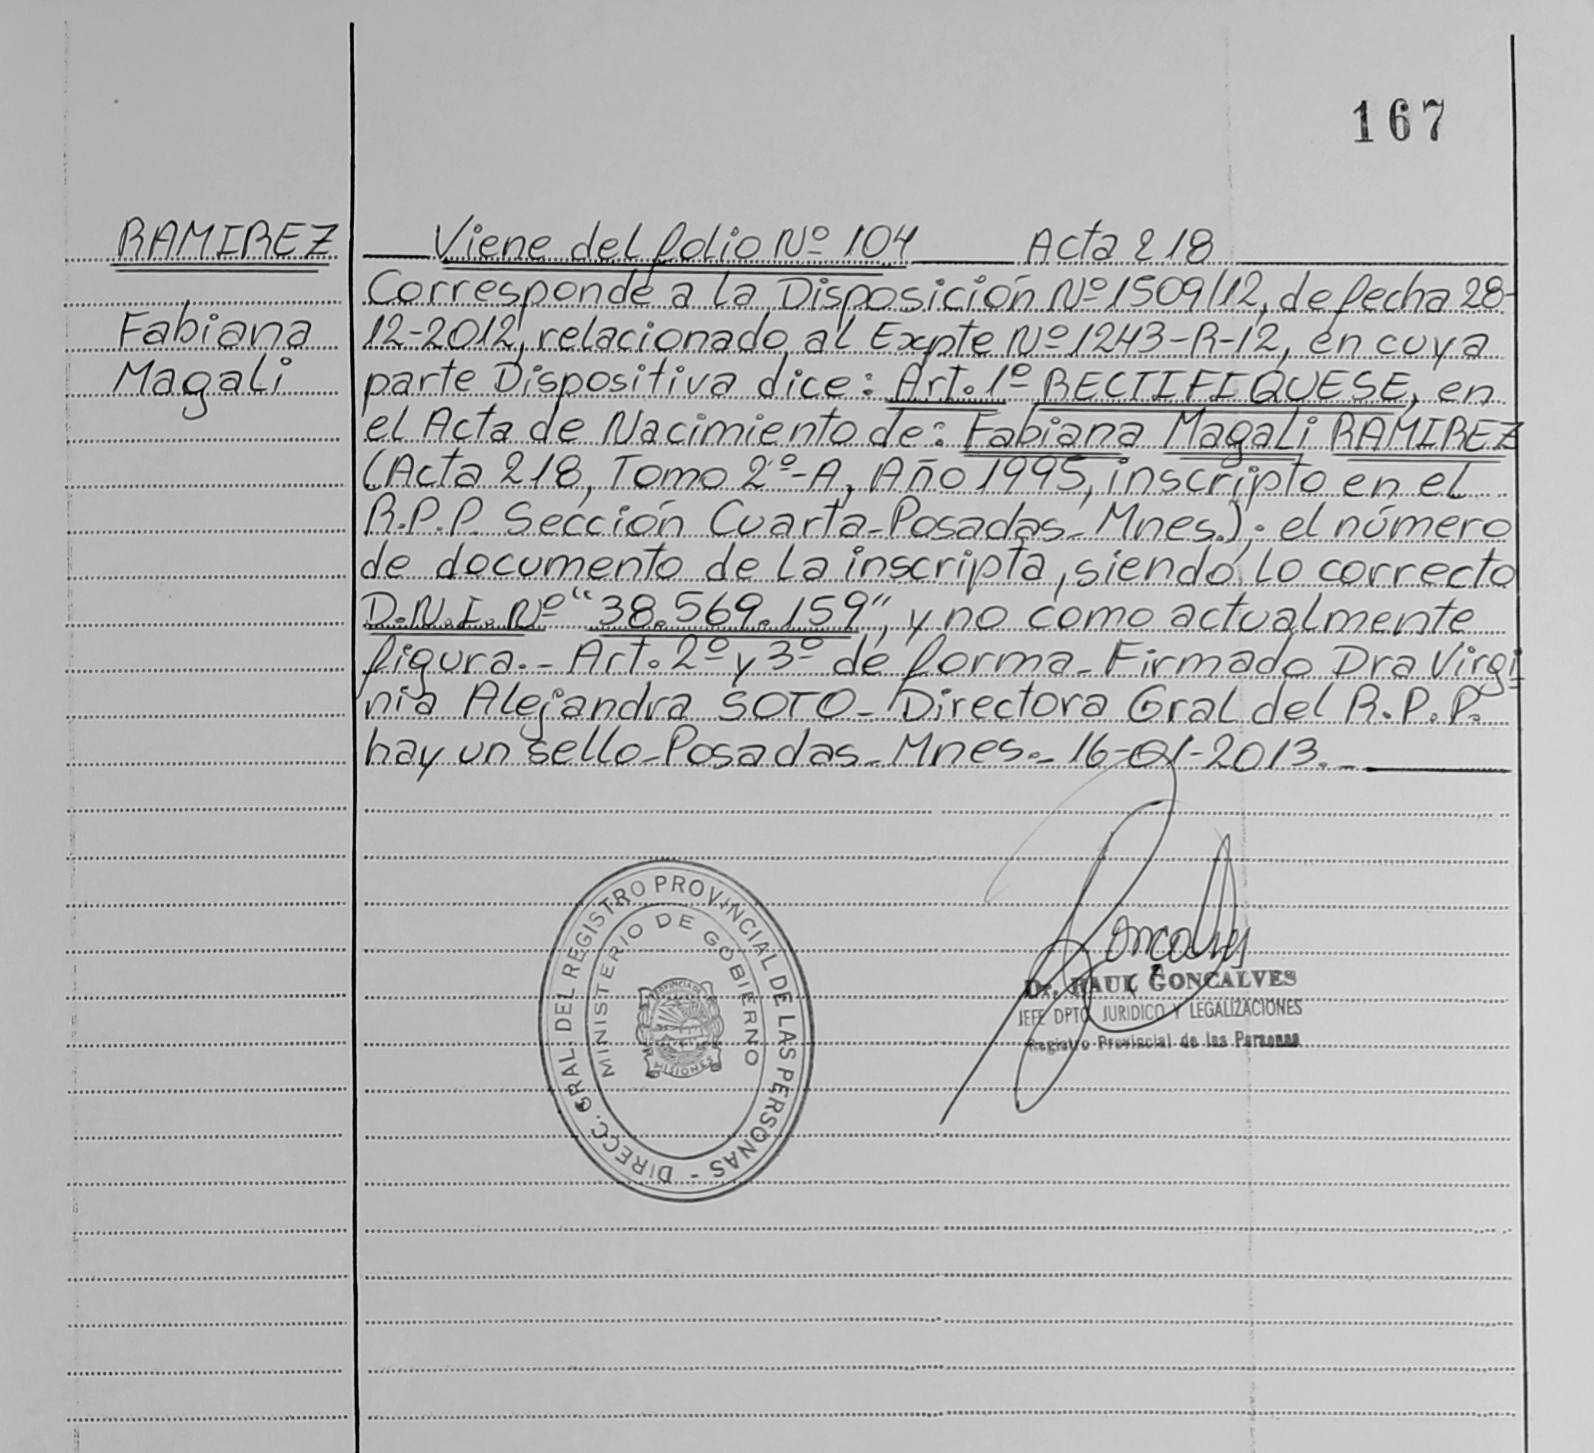 167
RAMIREZ
Fabiana
Magali
Viene del folio Nº 104 Acta 218
Corresponde a la Disposición Nº 1509/12, de fecha 28-
12-2012, relacionado al Expte Nº 1243-R-12, en cuya
parte Dispositiva dice: Art. 1º RECTIFIQUESE, en
el Acta de Nacimiento de: Fabiana Magali RAMIREZ
(Acta 218, Tomo 2º-A, Año 1995, inscripto en el
R.P.P. Sección Cuarta-Posadas-Mnes.); el número
de documento de la inscripta, siendo lo correcto
D.N.I. Nº "38.569.159", y no como actualmente
figura.- Art. 2º y 3º de forma- Firmado Dra Virgi
nia Alejandra SOTO- Directora Gral del R.P.P.
hay un sello-Posadas-Mnes.- 16-01-2013.-
DIRECC. GRAL. DEL REGISTRO PROVINCIAL DE LAS PERSONAS -
MINISTERIO DE GOBIERNO
PROVINCIA DE
MISIONES
Goncalves
Dr. RAUL GONCALVES
JEFE DPTO JURIDICO Y LEGALIZACIONES
Registro Provincial de las Personas